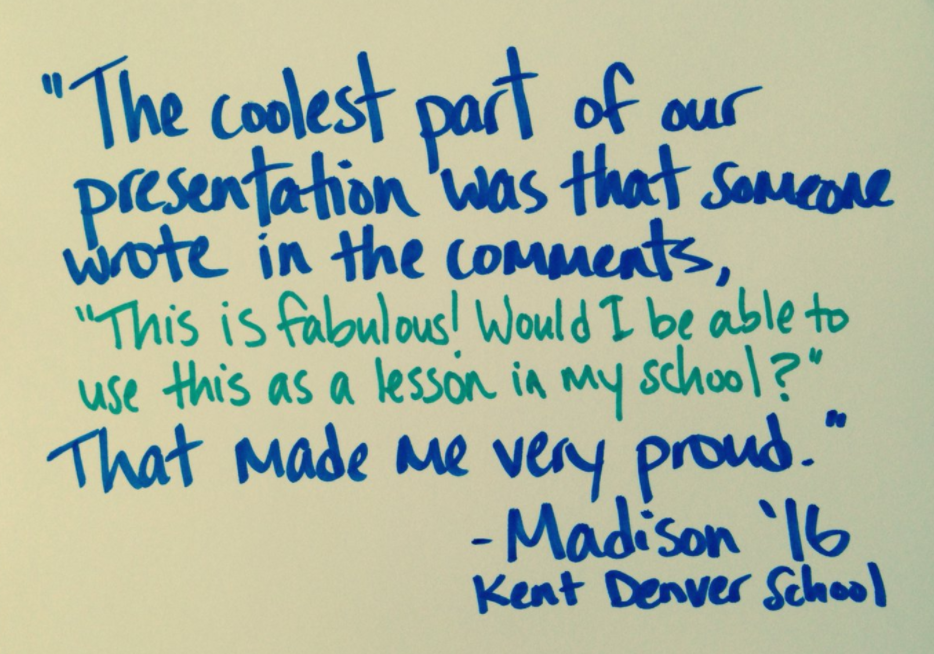 "The coolest part of our
presentation was that someone
wrote in the comments,
"This is fabulous! Would I be able to
use this as a lesson in my school?"
That made me very proud."
- Madison '16
Kent Denver School